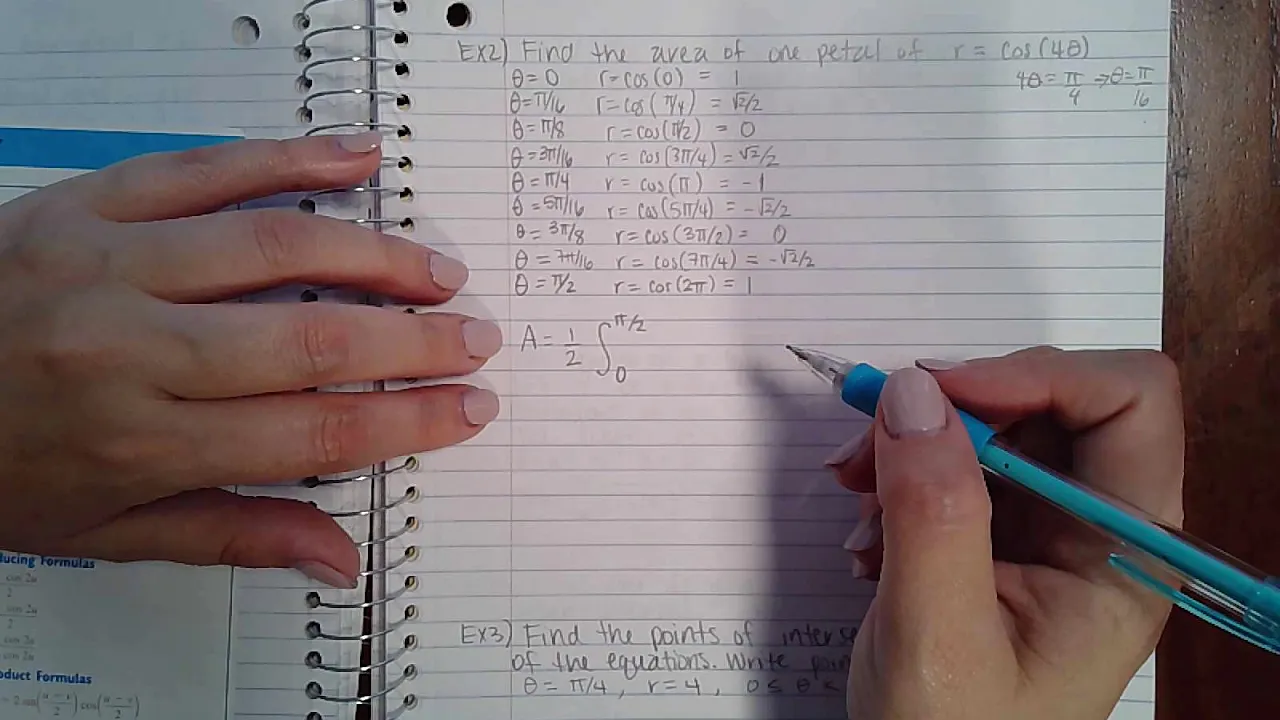 EX2) Find the area of one petal of r = cos(4θ)
θ=0 r=cos(0) = 1
4θ=π/4 → θ=π/16
θ=π/16 r=cos(π/4) = √2/2
θ=π/8 r=cos(π/2) = 0
θ=3π/16 r=cos(3π/4)=√2/2
θ=π/4 r=cos(π) = -1
θ=5π/16 r=cos(5π/4)=-√2/2
θ=3π/8 r=cos(3π/2)= 0
θ=7π/16 r=cos(7π/4)=-√2/2
θ=π/2 r=cos(2π)=1
A=1/2 ∫₀^π/2
EX3) Find the points of
of the equations. Write
θ=π/4, r=4, 0≤ θ <
ucing Formulas
cos 2u
2
cos 2u
2
cos 2u
cos 2u
oduct Formulas